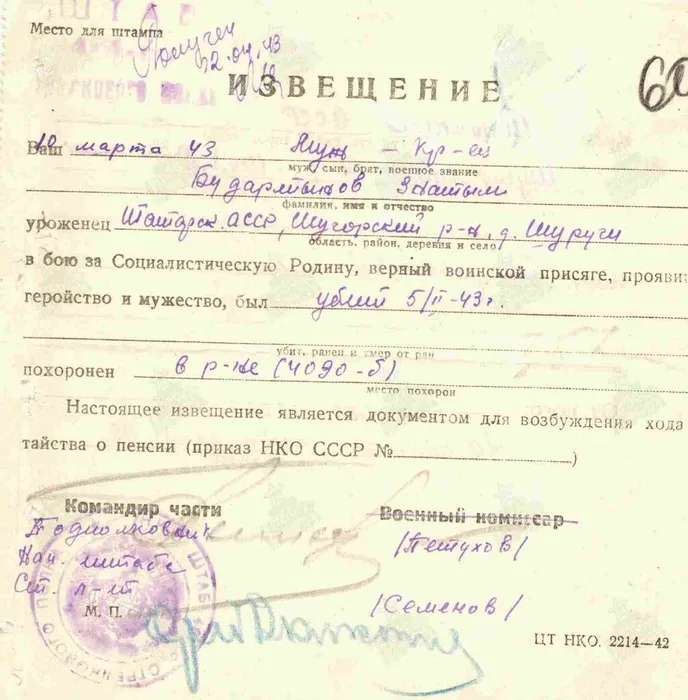 ШТАБ
Место для штампа
Получен
2.04.43
ИЗВЕЩЕНИЕ
60
Ваш 10 марта 43 Муж — Кр-ец
муж, сын, брат, военное звание
фамилия, имя и отчество
уроженец Татарск. АССР, Шугорский р-н, д. Шуруги
область, район, деревня и село
в бою за Социалистическую Родину, верный воинской присяге, прояви
геройство и мужество, был убит 5/II-43 г.
убит, ранен и умер от ран
похоронен в р-не (4090-б)
место похорон
Настоящее извещение является документом для возбуждения хода
тайства о пенсии (приказ НКО СССР № )
Командир части Военный комиссар
Подполковник /Петухов/
Нач. штаба
Ст. л-нт
М. П. /Семенов/
ЦТ НКО. 2214—42